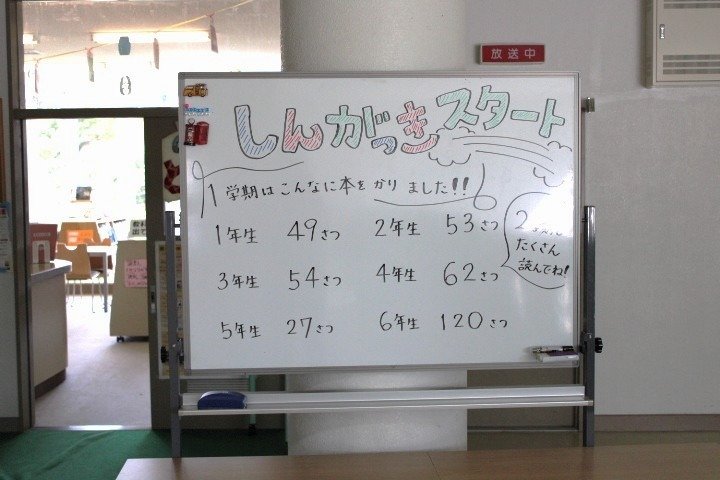 放送中
しんがっきスタート
1学期はこんなに本をかりました!!
1年生 49さつ 2年生 53さつ
3年生 54さつ 4年生 62さつ
5年生 27さつ 6年生 120さつ
2
たくさん
読んでね!